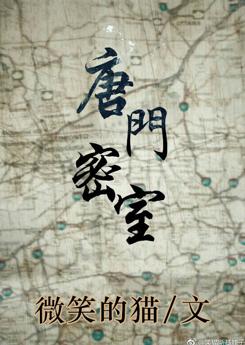 唐門密室
微笑的猫/文